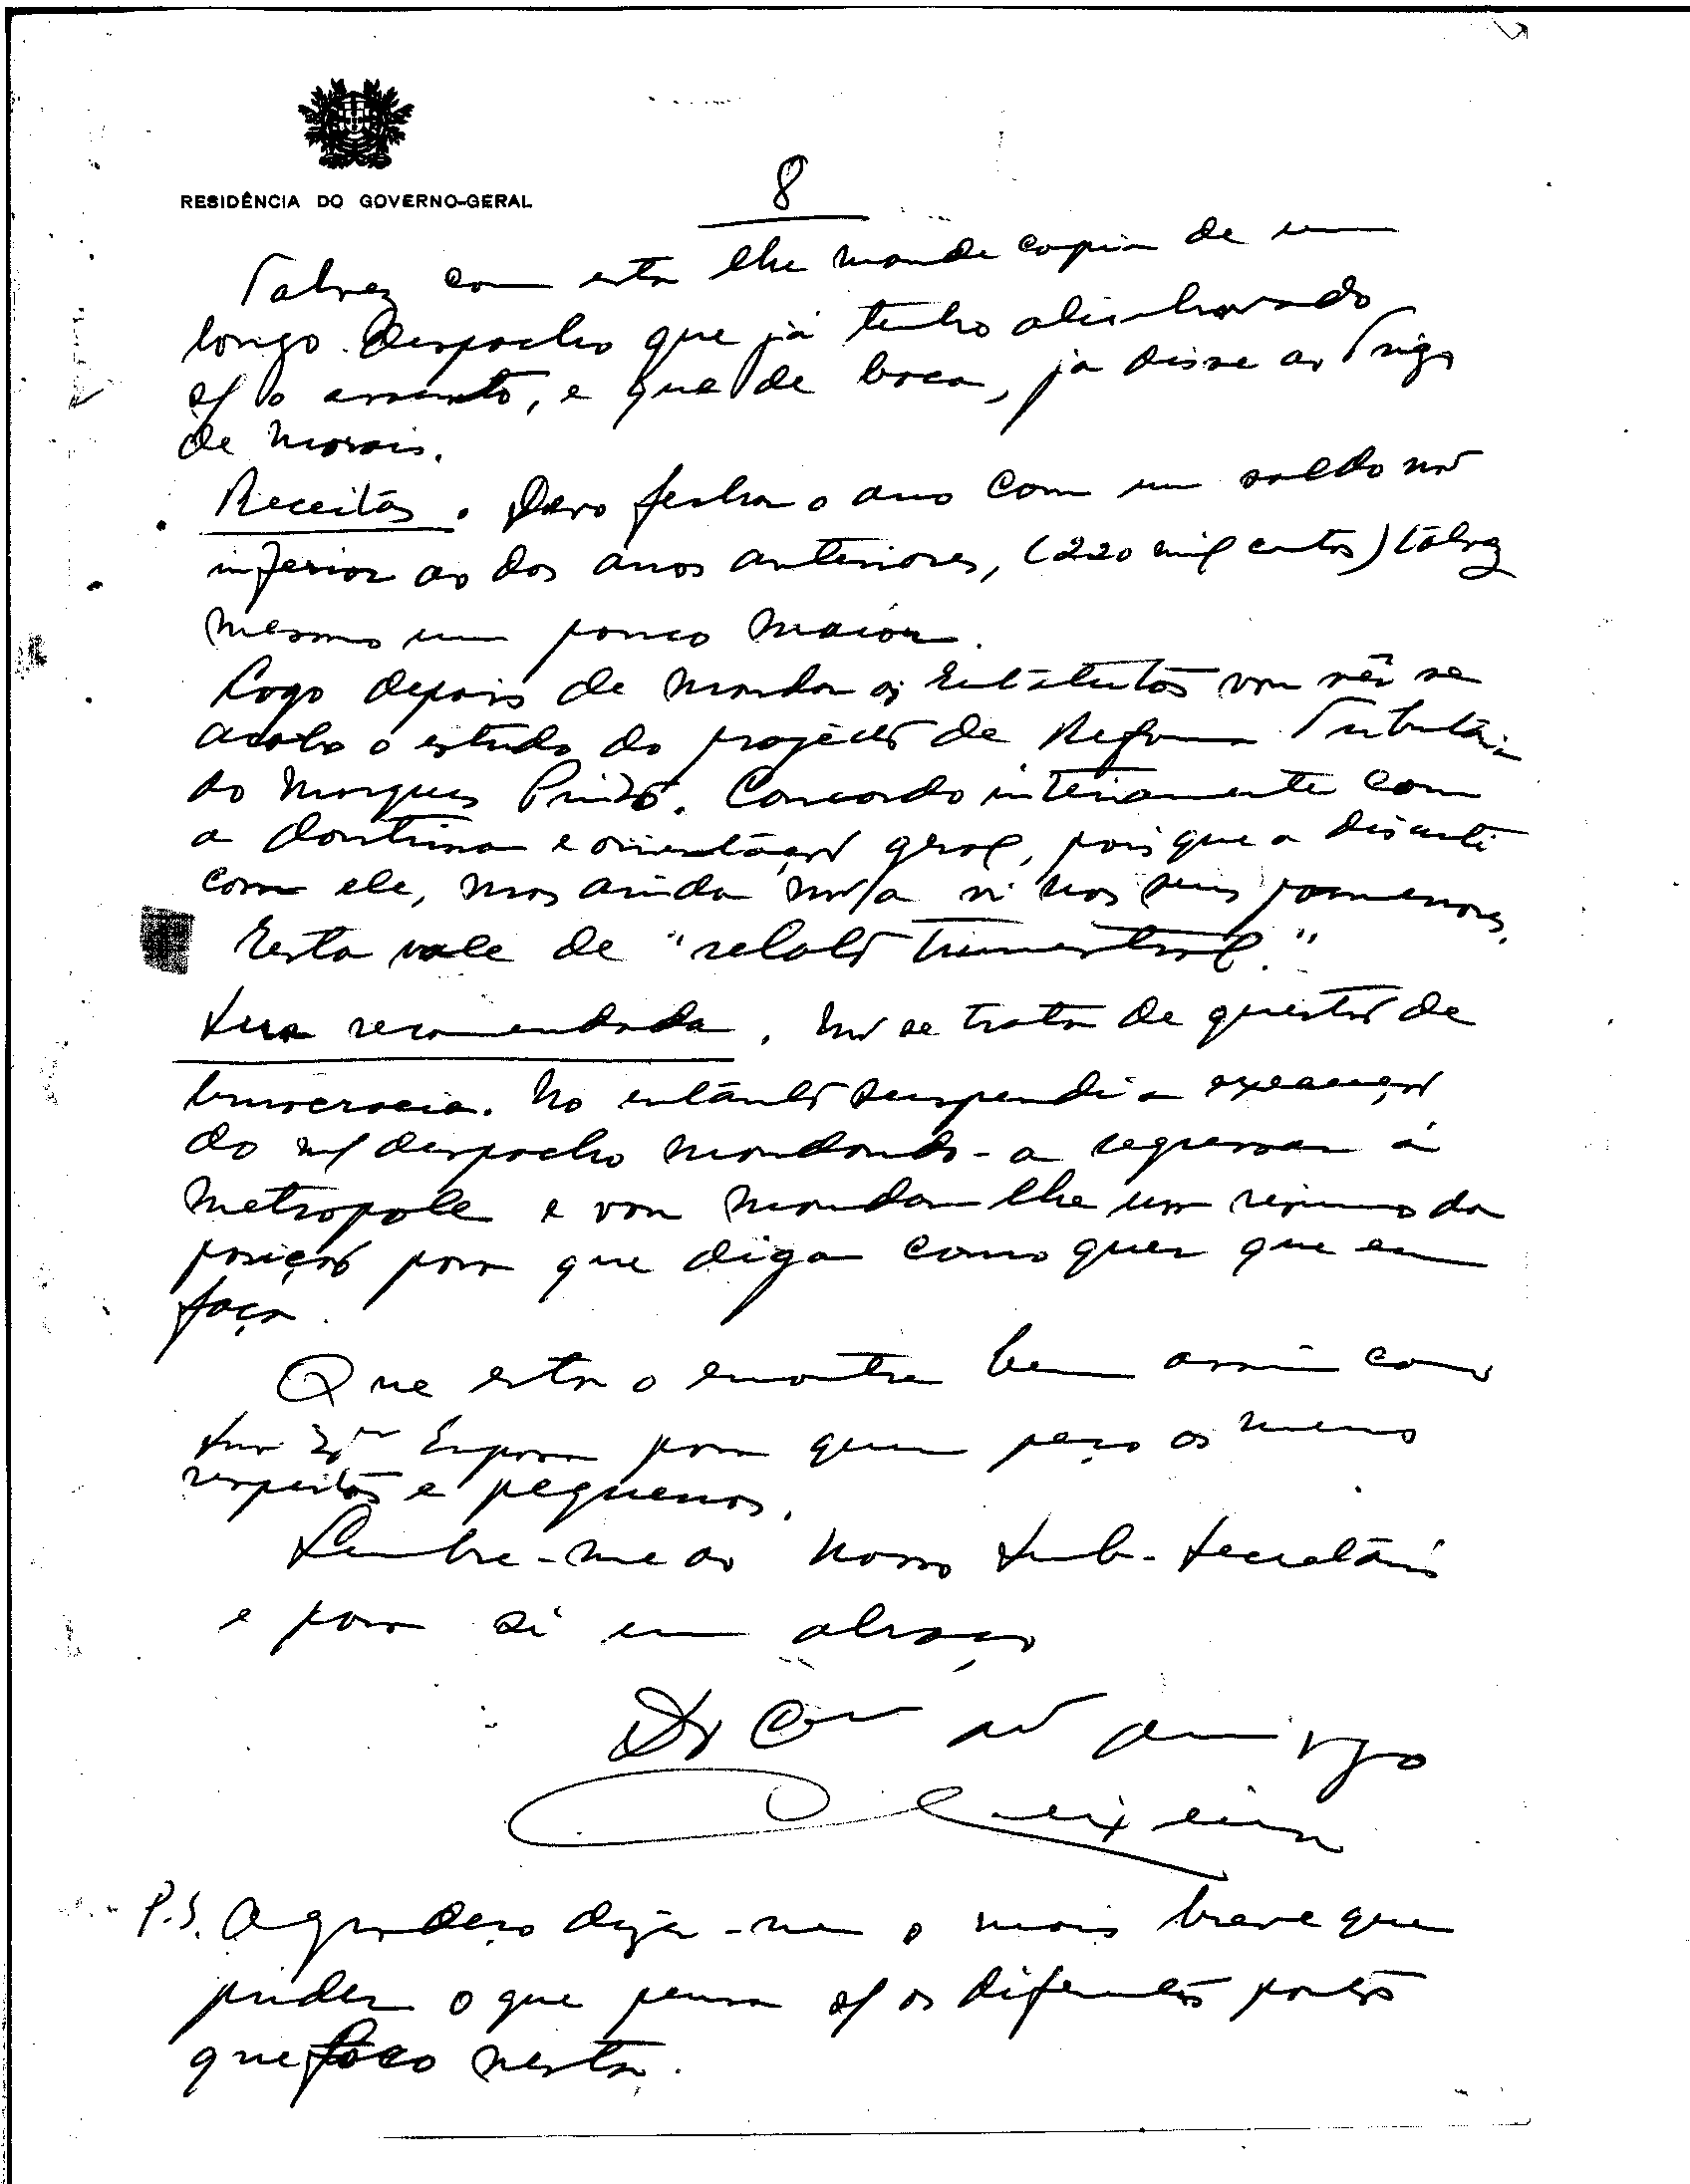 RESIDÊNCIA DO GOVERNO-GERAL
8
Talvez com esta lhe mande copia de um
longo despacho que já tenho alinhavado
s/ o assunto, e que de boca, já disse ao Trigo
de Morais.
Receitas. Devo fechar o ano com um saldo não
inferior ao dos anos anteriores, (220 mil contos) talvez
mesmo um pouco maior.
Logo depois de mandar os Estatutos vou vêr se
acabo o estudo do projecto de Reforma Tributária
do Marques Pinto. Concordo inteiramente com
a doutrina e orientação geral, pois que a discuti
com ele, mas ainda não a vi nos seus pormenores.
Esta vale de "relato trimestral."
Sua recomendada. Não se trata de questão de
burocracia. No entanto suspendi a execução
do m/ despacho mandando-a regressar á
Metropole e vou mandar lhe um resumo da
posição para que diga como quer que eu
faça.
Que esta o encontre bem assim como
Sua Exma Esposa para quem peço os meus
respeitos e pequenos.
Lembre-me ao nosso Sub-Secretário
e para si um abraço
do amigo
P.S. Agradeço diga-me o mais breve que
puder o que pensa s/ os diferentes pontos
que foco nesta.